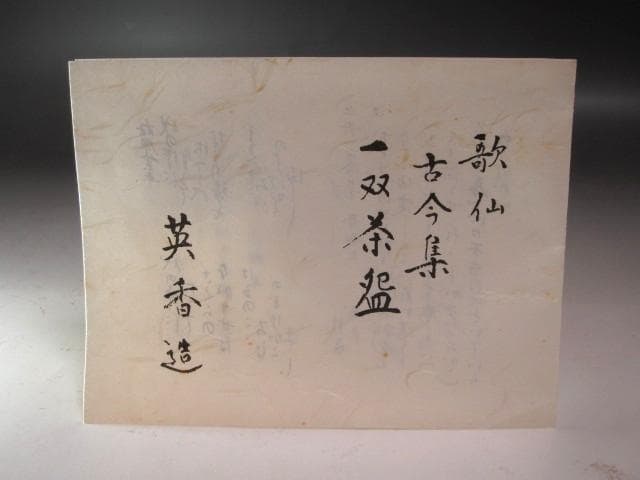 歌仙
古今集
一双茶盌
英香造